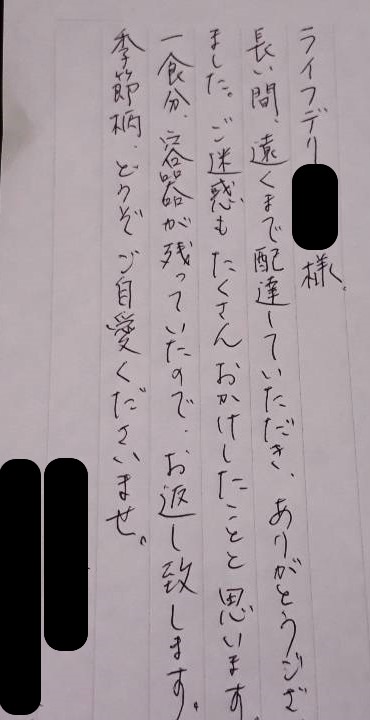 ライフデリ
様
長い間、遠くまで配達していただき、ありがとうござ
ました。ご迷惑もたくさんおかけしたことと思います
一食分、容器が残っていたので、お返し致します。
季節柄、どうぞご自愛くださいませ。